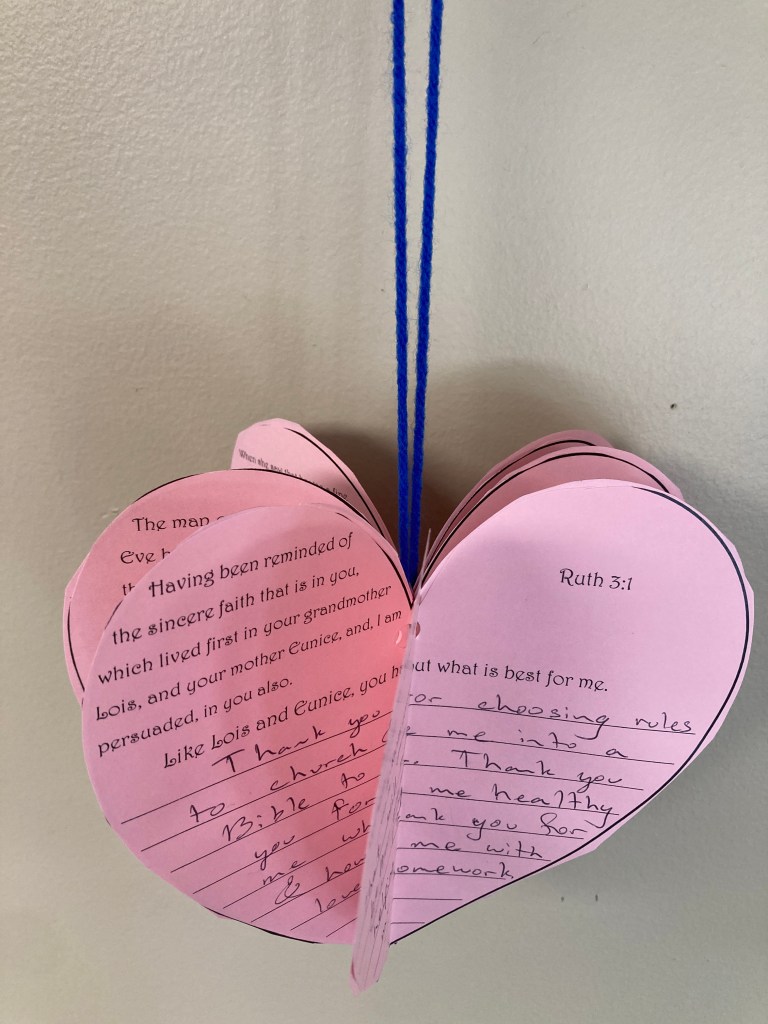 When she saw that
The man
Eve
Having been reminded of
the sincere faith that is in you,
which lived first in your grandmother
Lois, and your mother Eunice, and, I am
persuaded, in you also.
Like Lois and Eunice, you
Thank you
to church
Bible to
you for
me
&
love
Ruth 3:1
out what is best for me.
or choosing rules
me into a
Thank you
me healthy
ank you for
me with
omework